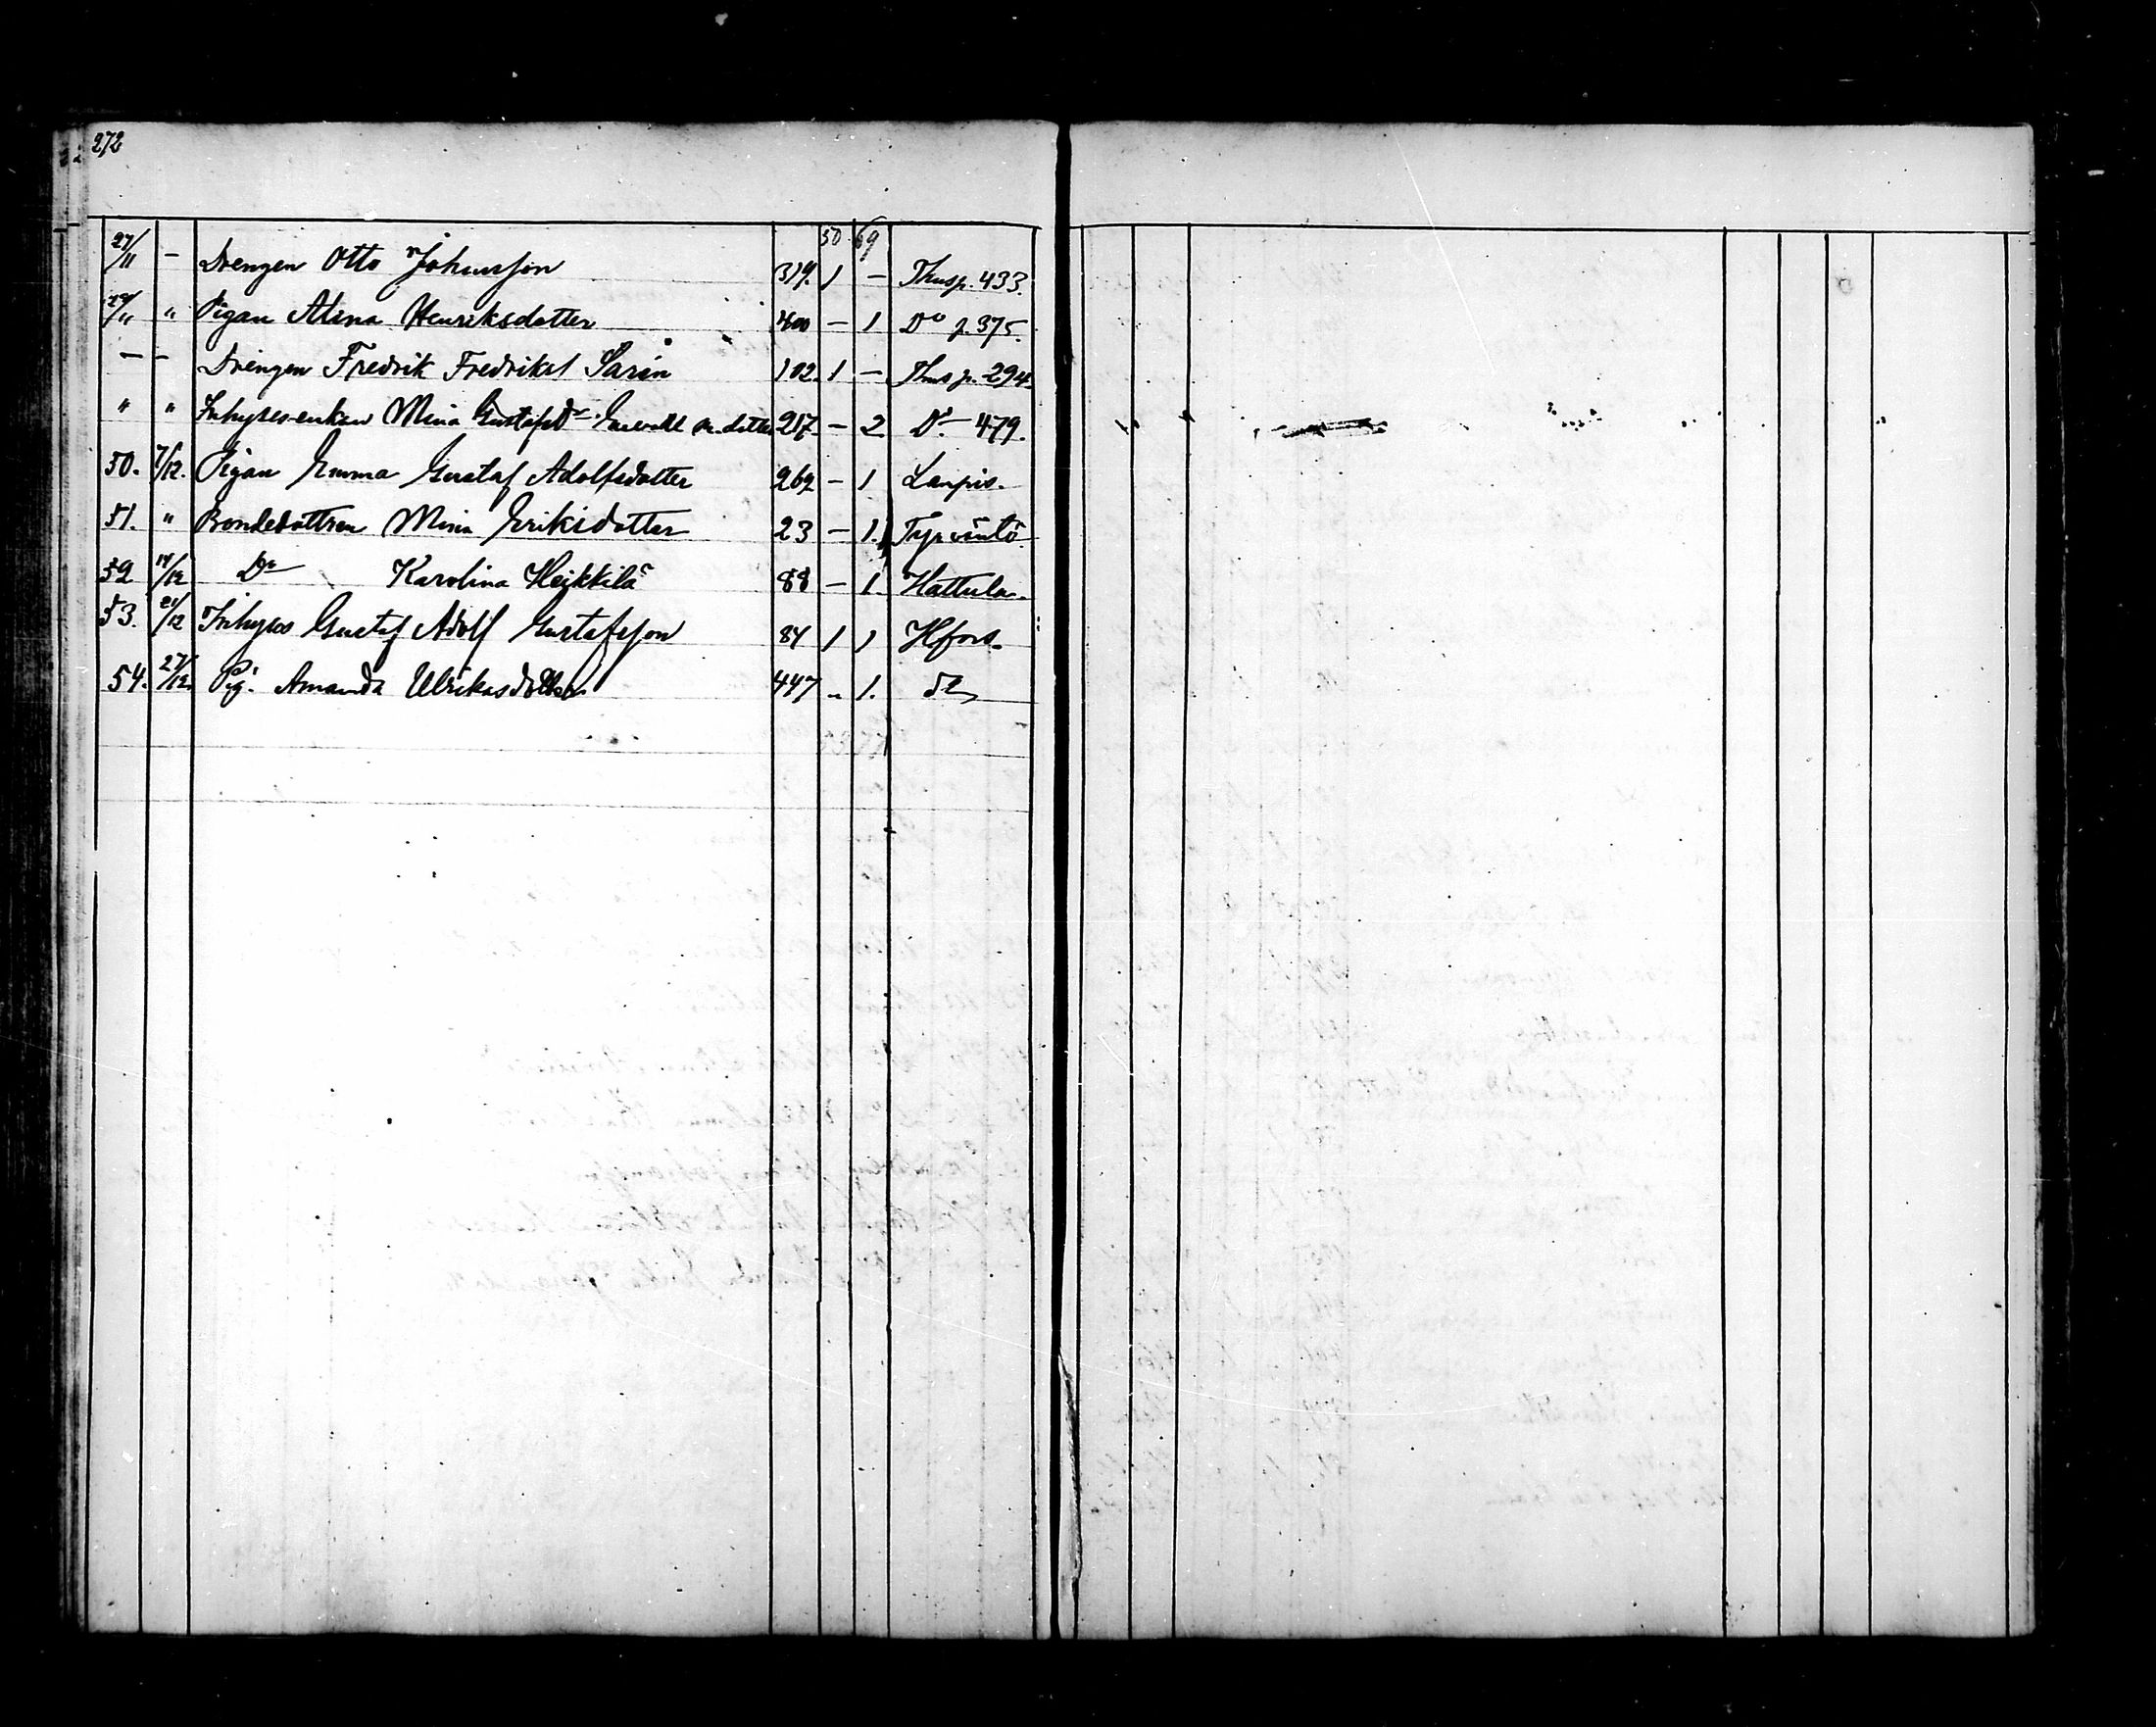 272
50 69
27/11 - Drengen Otto Johansson 319. 1 - Thus p. 433.
29/11 " Pigan Alina Henriksdotter 400 - 1 Do p. 375.
- - Drengen Fredrik Fredriks Sarin 102. 1 - Thus p. 294.
" " Inhyses-enkan Mina Gustafsdr 217 - 2 Do - 479.
50. 7/12. Pigan Emma Gustaf Adolfsdotter 262 - 1 Lanpis.
51. " Bondedottren Mina Eriksdotter 23 - 1. Tyrväntö.
52 14/12 Do Karolina Heikkilä 88 - 1. Hattula.
53. 21/12 Inhyses Gustaf Adolf Gustafsson 84 1 1 Hfors.
54. 27/12. Pig. Amanda Ulrikasdotter 447 " 1. do